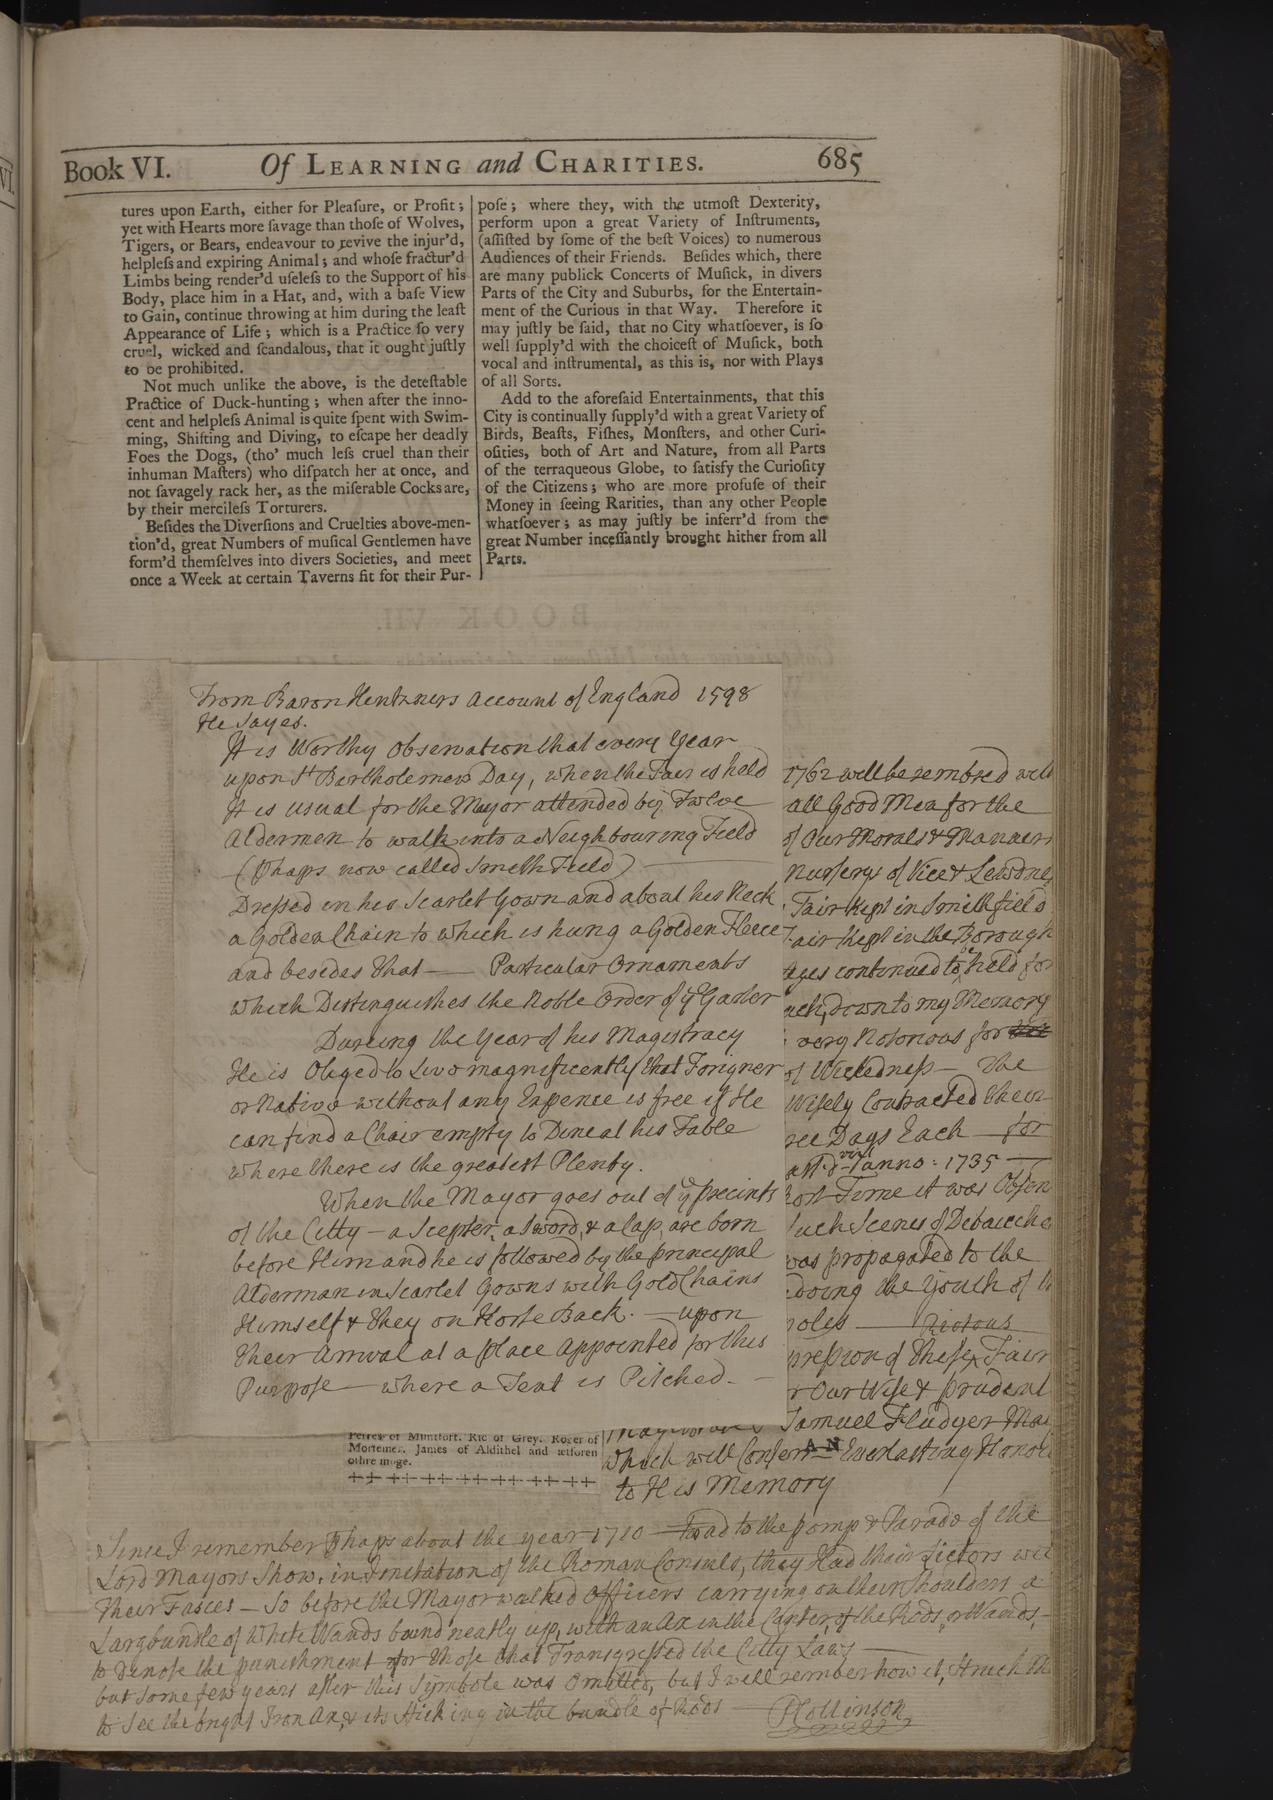 Book VI. Of LEARNING and CHARITIES. 685
tures upon Earth, either for Pleaſure, or Profit;
yet with Hearts more ſavage than thoſe of Wolves,
Tigers, or Bears, endeavour to revive the injur'd,
helpleſs and expiring Animal; and whoſe fractur'd
Limbs being render'd uſeleſs to the Support of his
Body, place him in a Hat, and, with a baſe View
to Gain, continue throwing at him during the leaſt
Appearance of Life; which is a Practice ſo very
cruel, wicked and ſcandalous, that it ought juſtly
to be prohibited.
Not much unlike the above, is the deteſtable
Practice of Duck-hunting; when after the inno-
cent and helpleſs Animal is quite ſpent with Swim-
ming, Shifting and Diving, to eſcape her deadly
Foes the Dogs, (tho' much leſs cruel than their
inhuman Maſters) who diſpatch her at once, and
not ſavagely rack her, as the miſerable Cocks are,
by their mercileſs Torturers.
Beſides the Diverſions and Cruelties above-men-
tion'd, great Numbers of muſical Gentlemen have
form'd themſelves into divers Societies, and meet
once a Week at certain Taverns fit for their Pur-
poſe; where they, with the utmoſt Dexterity,
perform upon a great Variety of Inſtruments,
(aſſiſted by ſome of the beſt Voices) to numerous
Audiences of their Friends. Beſides which, there
are many publick Concerts of Muſick, in divers
Parts of the City and Suburbs, for the Entertain-
ment of the Curious in that Way. Therefore it
may juſtly be ſaid, that no City whatſoever, is ſo
well ſupply'd with the choiceſt of Muſick, both
vocal and inſtrumental, as this is, nor with Plays
of all Sorts.
Add to the aforeſaid Entertainments, that this
City is continually ſupply'd with a great Variety of
Birds, Beaſts, Fiſhes, Monſters, and other Curi-
oſities, both of Art and Nature, from all Parts
of the terraqueous Globe, to ſatisfy the Curioſity
of the Citizens; who are more profuſe of their
Money in ſeeing Rarities, than any other People
whatſoever; as may juſtly be inferr'd from the
great Number inceſſantly brought hither from all
Parts.
From Baron Hentzners Account of England 1598
He sayes.
It is Worthy Observation that every Year
upon St Bartholemew Day, when the Fair is held
It is usual for the Mayor attended by Twelve
Aldermen to walk into a Neighbouring Field
(Phaps now called Smith Field)
Dressed in his Scarlet Gown and about his Neck
a Golden Chain to which is hung a Golden Fleece
and besides that — Particular Ornaments
which Distinguishes the Noble Order of ye Garter
Dureing the Year of his Magistracy
He is Obliged to Live so magnificently that Forigner
or Native without any Expence is free if He
can find a Chair empty to Dine at his Table
where there is the greatest Plenty.
When the Mayor goes out of ye precints
of the Citty — a Scepter, a Sword, & a Cap, are born
before Him and he is followed by the principal
Alderman in Scarlet Gowns with Gold Chains
Himself & they on Horse Back. — upon
their Arrival at a place Appointed for this
Purpose — where a Tent is Pitched. —
1762 will be rembred with
all Good Men for the
of Our Morals & Manners
Nursery of Vice & Lewdnes
Fair Kept in Smithfield
Fair Kept in the Borough
ages continued to be held for
each, down to my Memory
very Notorious for
of Wickedness — the
Wisely Contracted their
ree Days Each — for
anno: 1735 —
Time it was Obser
such Scenes of Debauche
was propagated to the
doing the Youth of
Riotous
pression of these Fair
r Our Wise & prudent
Samuel Fludyer May
which will Conferr AN Everlasting Honor
to His Memory
Perres of Muntfort. Ric of Grey. Roger of
Mortemer. James of Aldithel and ætforen
othre moge.
Since I remember Phaps about the year 1710 — to the pomp & Parade of the
Lord Mayors Show, in Imitation of the Roman Consuls, they Had their Lictors wit
their Fasces — So before the Mayor walked Officers carrying on their Shoulders a
Larg bundle of White Wands bound neatly up, with an Ax in the Center, of the Rods, or Wands,
to Denote the punishment for those that Transgressed the Citty Laws —
but some few years after this Symbole was Omitted, but I well remember how it Struck
to See the bright Iron Ax, & its Sticking in the bundle of Rods — PCollinson